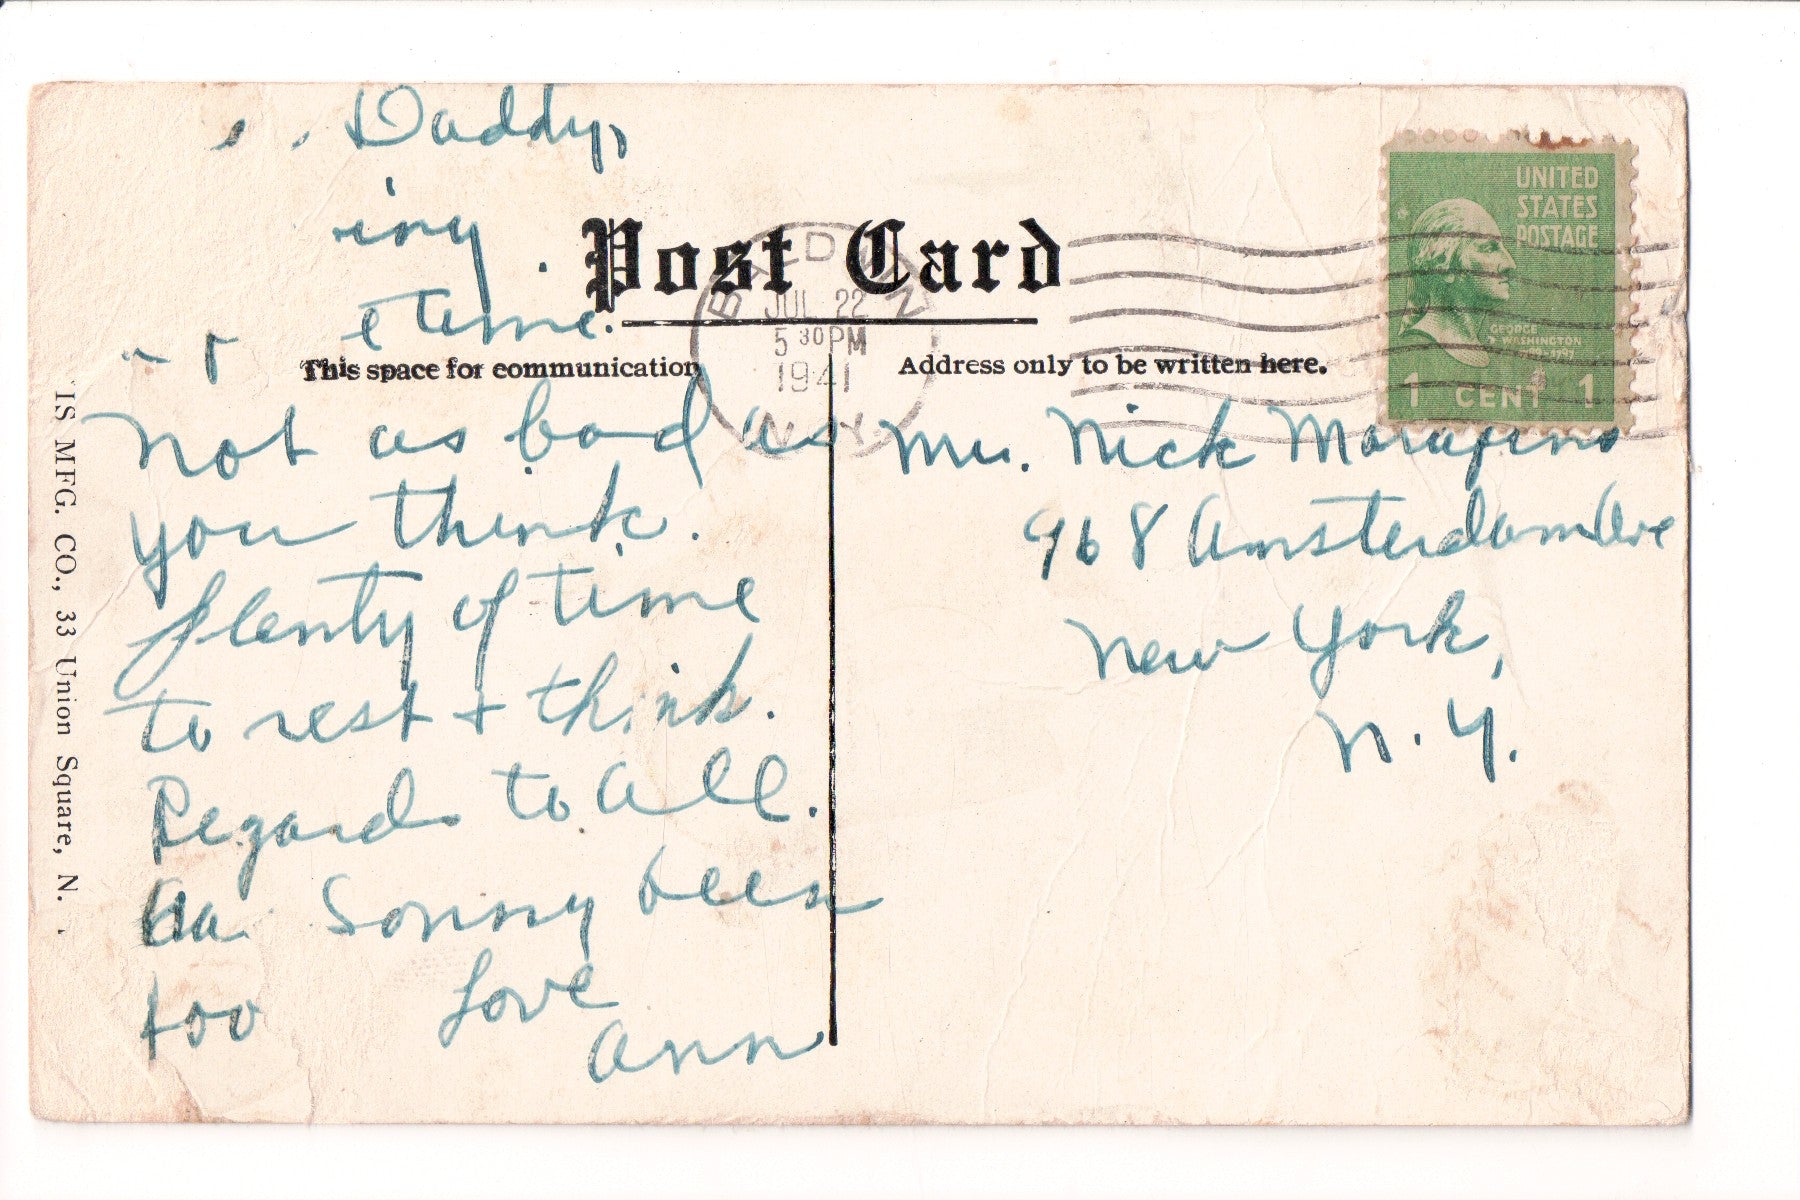 Daddy,
time.
Post Card
This space for communication
Address only to be written here.
BALDWIN
JUL 22
5 30 PM
1941
N.Y.
UNITED
STATES
POSTAGE
GEORGE
WASHINGTON
1 CENT 1
Not as bad as
you think.
Plenty of time
to rest + think.
Regards to all.
Sonny been
too Love
Ann
Mr. Nick
968 Amsterdam Ave
New York,
N.Y.
IS MFG. CO., 33 Union Square, N.